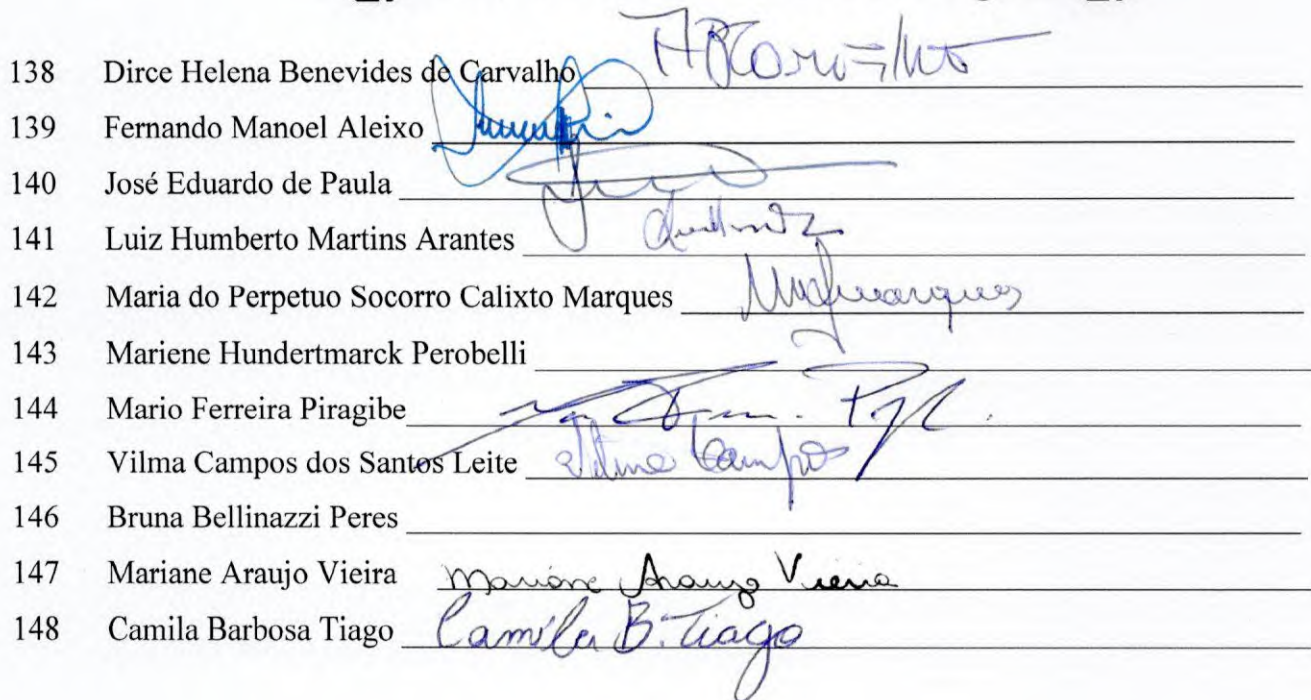 138 Dirce Helena Benevides de Carvalho
139 Fernando Manoel Aleixo
140 José Eduardo de Paula
141 Luiz Humberto Martins Arantes
142 Maria do Perpetuo Socorro Calixto Marques
143 Mariene Hundertmarck Perobelli
144 Mario Ferreira Piragibe
145 Vilma Campos dos Santos Leite Vilma Campos
146 Bruna Bellinazzi Peres
147 Mariane Araujo Vieira Mariane Araujo Vieira
148 Camila Barbosa Tiago Camila B. Tiago